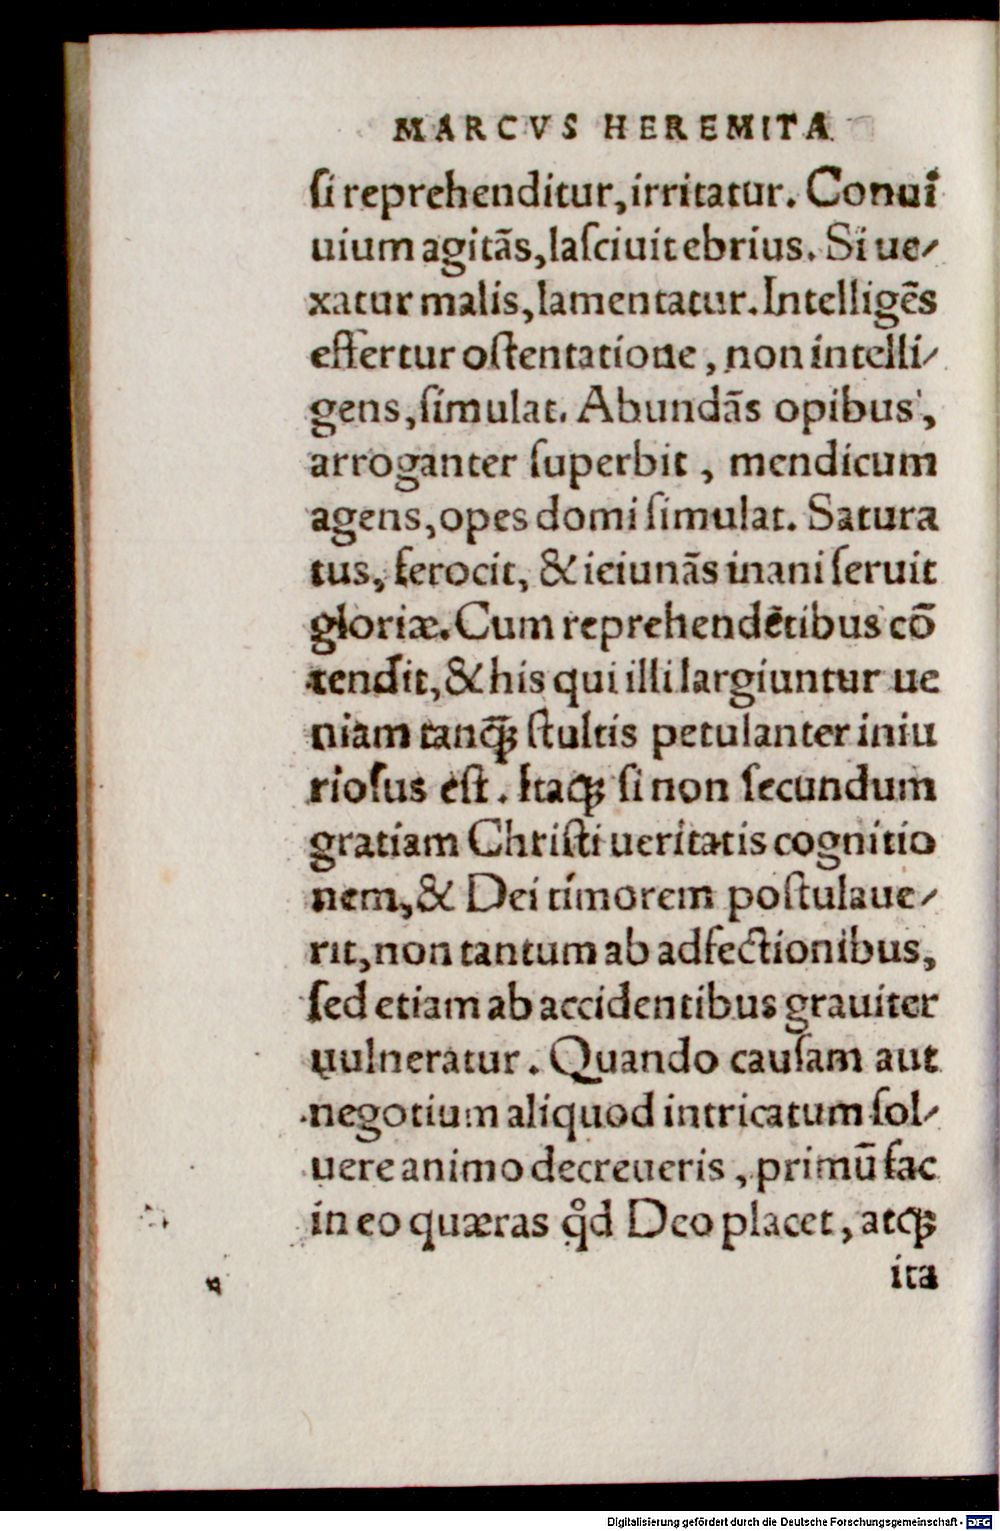 MARCVS HEREMITA
ſi reprehenditur, irritatur. Conui
uium agitãs, laſciuit ebrius. Si ue⸗
xatur malis, lamentatur. Intelligẽs
effertur oſtentatione, non intelli⸗
gens, ſimulat. Abundãs opibus,
arroganter ſuperbit, mendicum
agens, opes domi ſimulat. Satura
tus, ferocit, & ieiunãs inani ſeruit
gloriæ. Cum reprehendẽtibus cõ
tendit, & his qui illi largiuntur ue
niam tanq̃ꝫ ſtultis petulanter iniu
rioſus eſt. Itaqꝫ ſi non ſecundum
gratiam Chriſti ueritatis cognitio
nem, & Dei timorem poſtulaue⸗
rit, non tantum ab adfectionibus,
ſed etiam ab accidentibus grauiter
uulneratur. Quando cauſam aut
negotium aliquod intricatum ſol⸗
uere animo decreueris, primũ fac
in eo quæras qͦd Deo placet, atqꝫ
ita
Digitalisierung gefördert durch die Deutsche Forschungsgemeinschaft - DFG